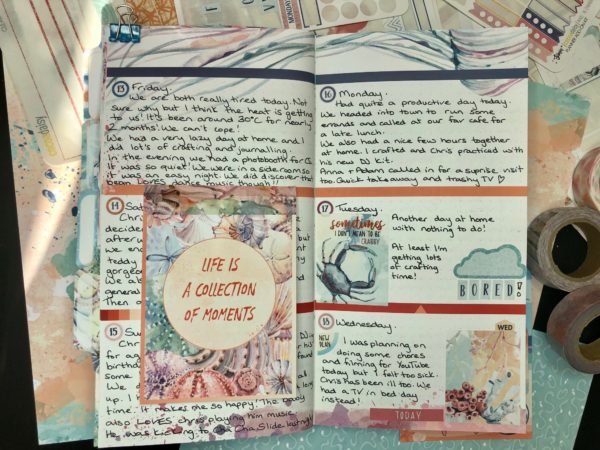 13 Friday.
We are both really tired today. Not
sure why but I think the heat is getting
to us! It's been around 30°C for nearly
2 months! We can't cope!
We had a very lazy day at home and I
did lots of crafting and journalling.
In the evening we had a photobooth for
It was so quiet! We were in a side room so
it was an easy night. We did discover that
bean LOVES dance music though!!
14 Sat
Chri
decided
after
we en
teddy
gorge
We al
general
Then o
but
15 Su
for ag
birthd
some
We
up. I
time. It makes me so happy! The baby
also LOVES chris playing him music.
He was kicking to Cha Cha Slide last night
LIFE IS
A COLLECTION
OF MOMENTS
16 Monday.
Had quite a productive day today.
We headed into town to run some
errands and called at our fav cafe for
a late lunch.
We also had a nice few hours together
at home. I crafted and Chris practiced with
his new DJ kit.
Anna + Adam called in for a suprise visit
too. Quick takeaway and trashy TV ♡
17 Tuesday.
sometimes
I DON'T MEAN TO BE
CRABBY
Another day at home
with nothing to do!
At least I'm
getting lots
of crafting
time!
BORED
18 Wednesday.
NEW
PLAN
I was planning on
doing some chores
and filming for YouTube
today but I felt too sick.
Chris has been ill too. We
had a TV in bed day
instead!
WED
TODAY
MONDAY